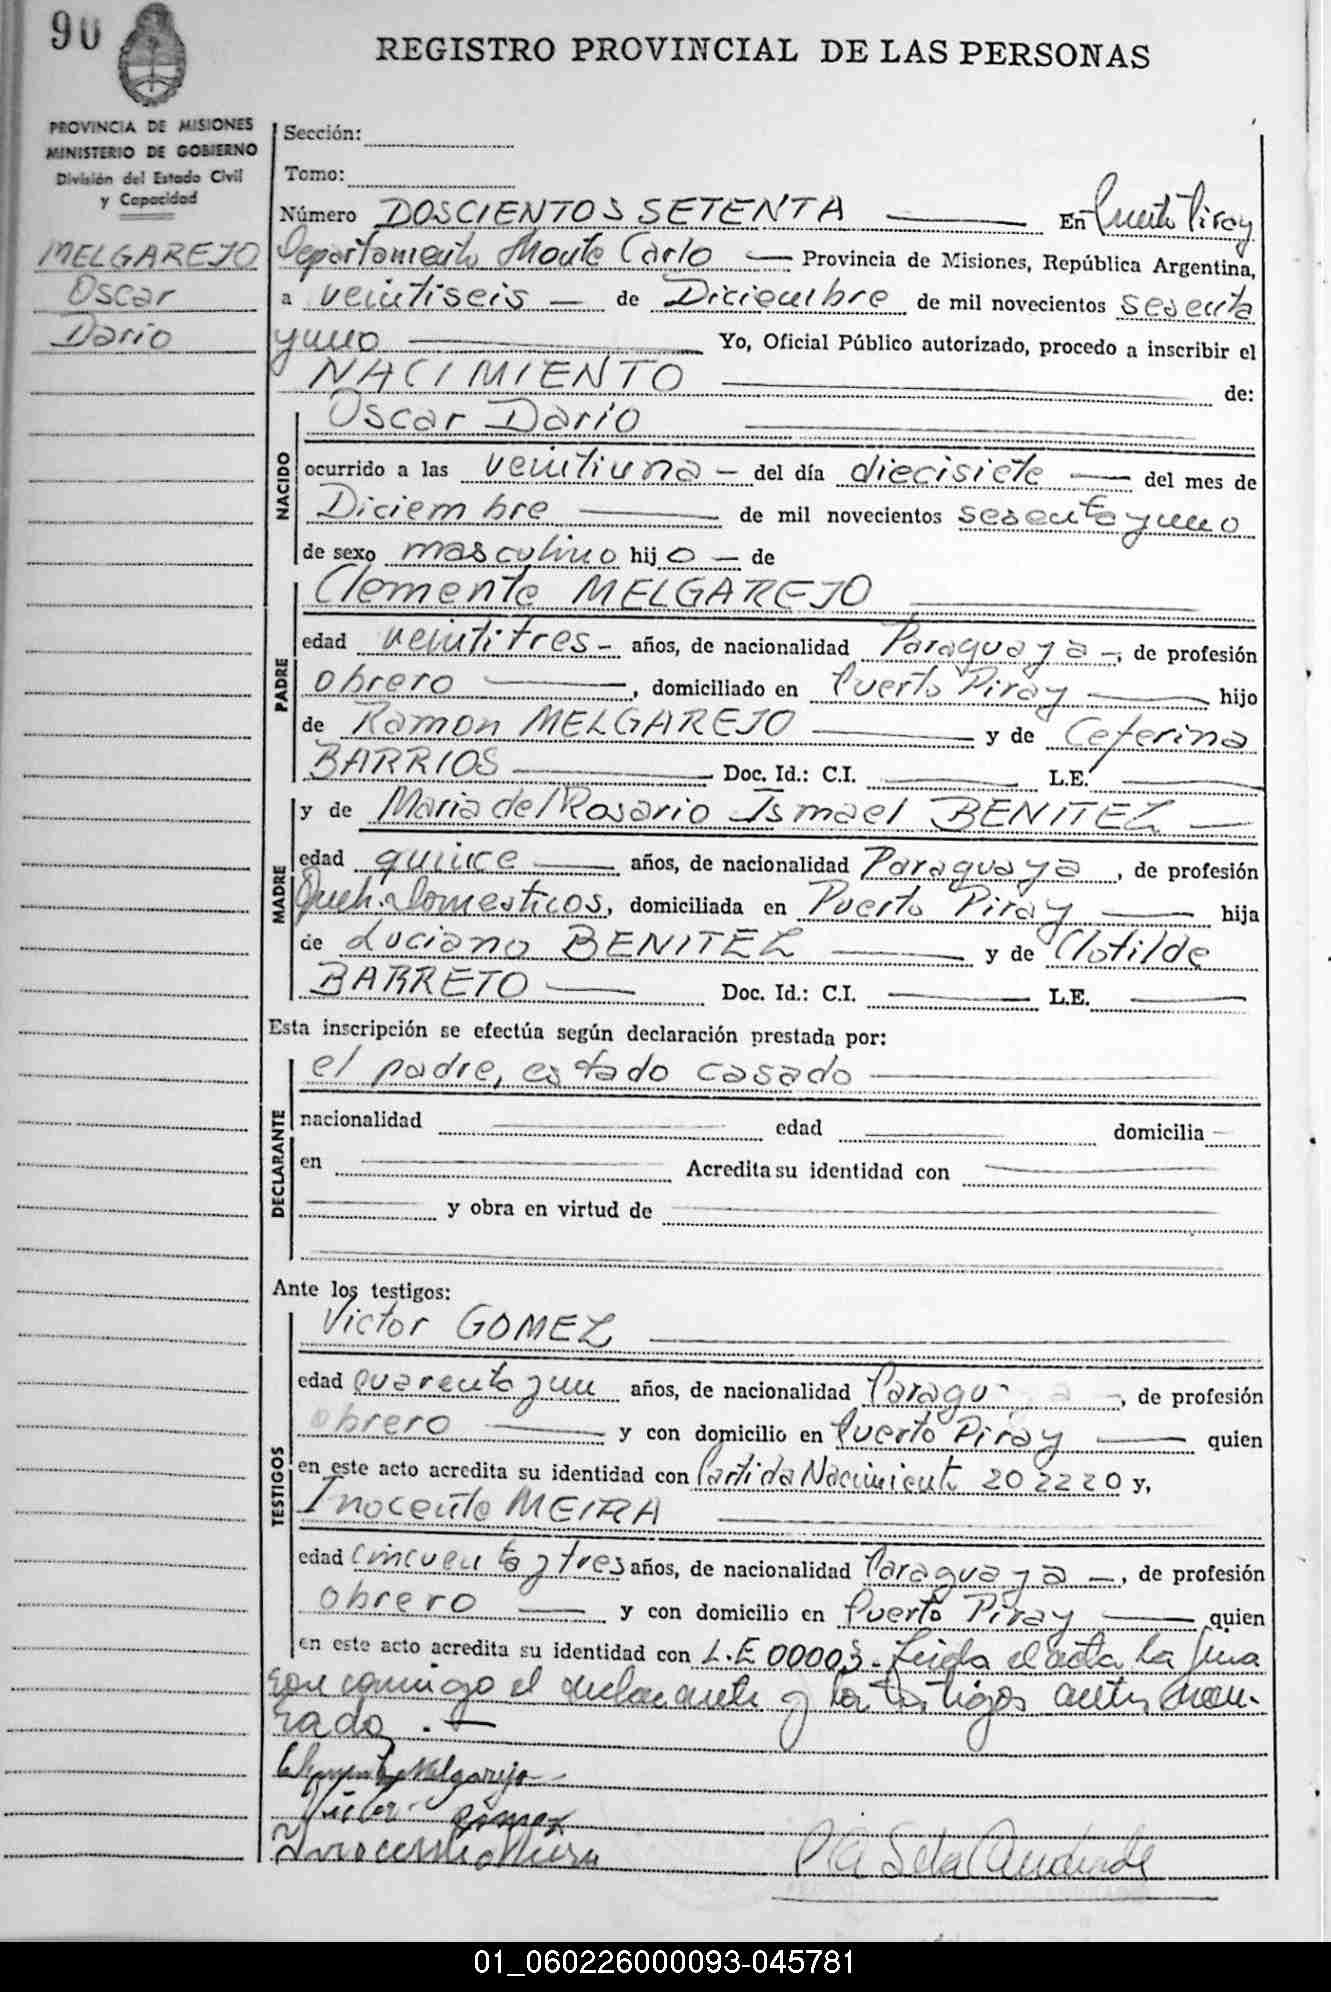 90
REGISTRO PROVINCIAL DE LAS PERSONAS
PROVINCIA DE MISIONES
MINISTERIO DE GOBIERNO
División del Estado Civil
y Capacidad
MELGAREJO
Oscar
Dario
Sección:
Tomo:
Número DOSCIENTOS SETENTA — En Puerto Piray
Departamento Monte Carlo — Provincia de Misiones, República Argentina,
a veintiseis — de Diciembre de mil novecientos sesenta
y uno — Yo, Oficial Público autorizado, procedo a inscribir el
NACIMIENTO — de:
NACIDO
Oscar Dario —
ocurrido a las veintiuna — del día diecisiete — del mes de
Diciembre — de mil novecientos sesenta y uno
de sexo masculino hijo — de
PADRE
Clemente MELGAREJO —
edad veintitres — años, de nacionalidad Paraguaya —, de profesión
obrero —, domiciliado en Puerto Piray — hijo
de Ramon MELGAREJO — y de Ceferina
BARRIOS — Doc. Id.: C.I. — L.E. —
MADRE
y de Maria del Rosario Ismael BENITEZ —
edad quince — años, de nacionalidad Paraguaya, de profesión
Queh. domesticos, domiciliada en Puerto Piray — hija
de Luciano BENITEZ — y de Clotilde
BARRETO — Doc. Id.: C.I. — L.E. —
Esta inscripción se efectúa según declaración prestada por:
DECLARANTE
el padre, estado casado —
nacionalidad — edad — domicilia —
en — Acredita su identidad con —
— y obra en virtud de —
Ante los testigos:
TESTIGOS
Victor GOMEZ —
edad cuarenta y un años, de nacionalidad Paraguaya —, de profesión
obrero — y con domicilio en Puerto Piray — quien
en este acto acredita su identidad con Partida Nacimiento 202220 y,
Inocente MEIRA —
edad cincuenta y tres años, de nacionalidad Paraguaya —, de profesión
obrero — y con domicilio en Puerto Piray — quien
en este acto acredita su identidad con L.E 00003. Leida el acta la firma
ron conmigo el declarante y los testigos antes nom-
rados. —
Clemente Melgarejo
Victor Gomez
Inocensio Meira
01_060226000093-045781